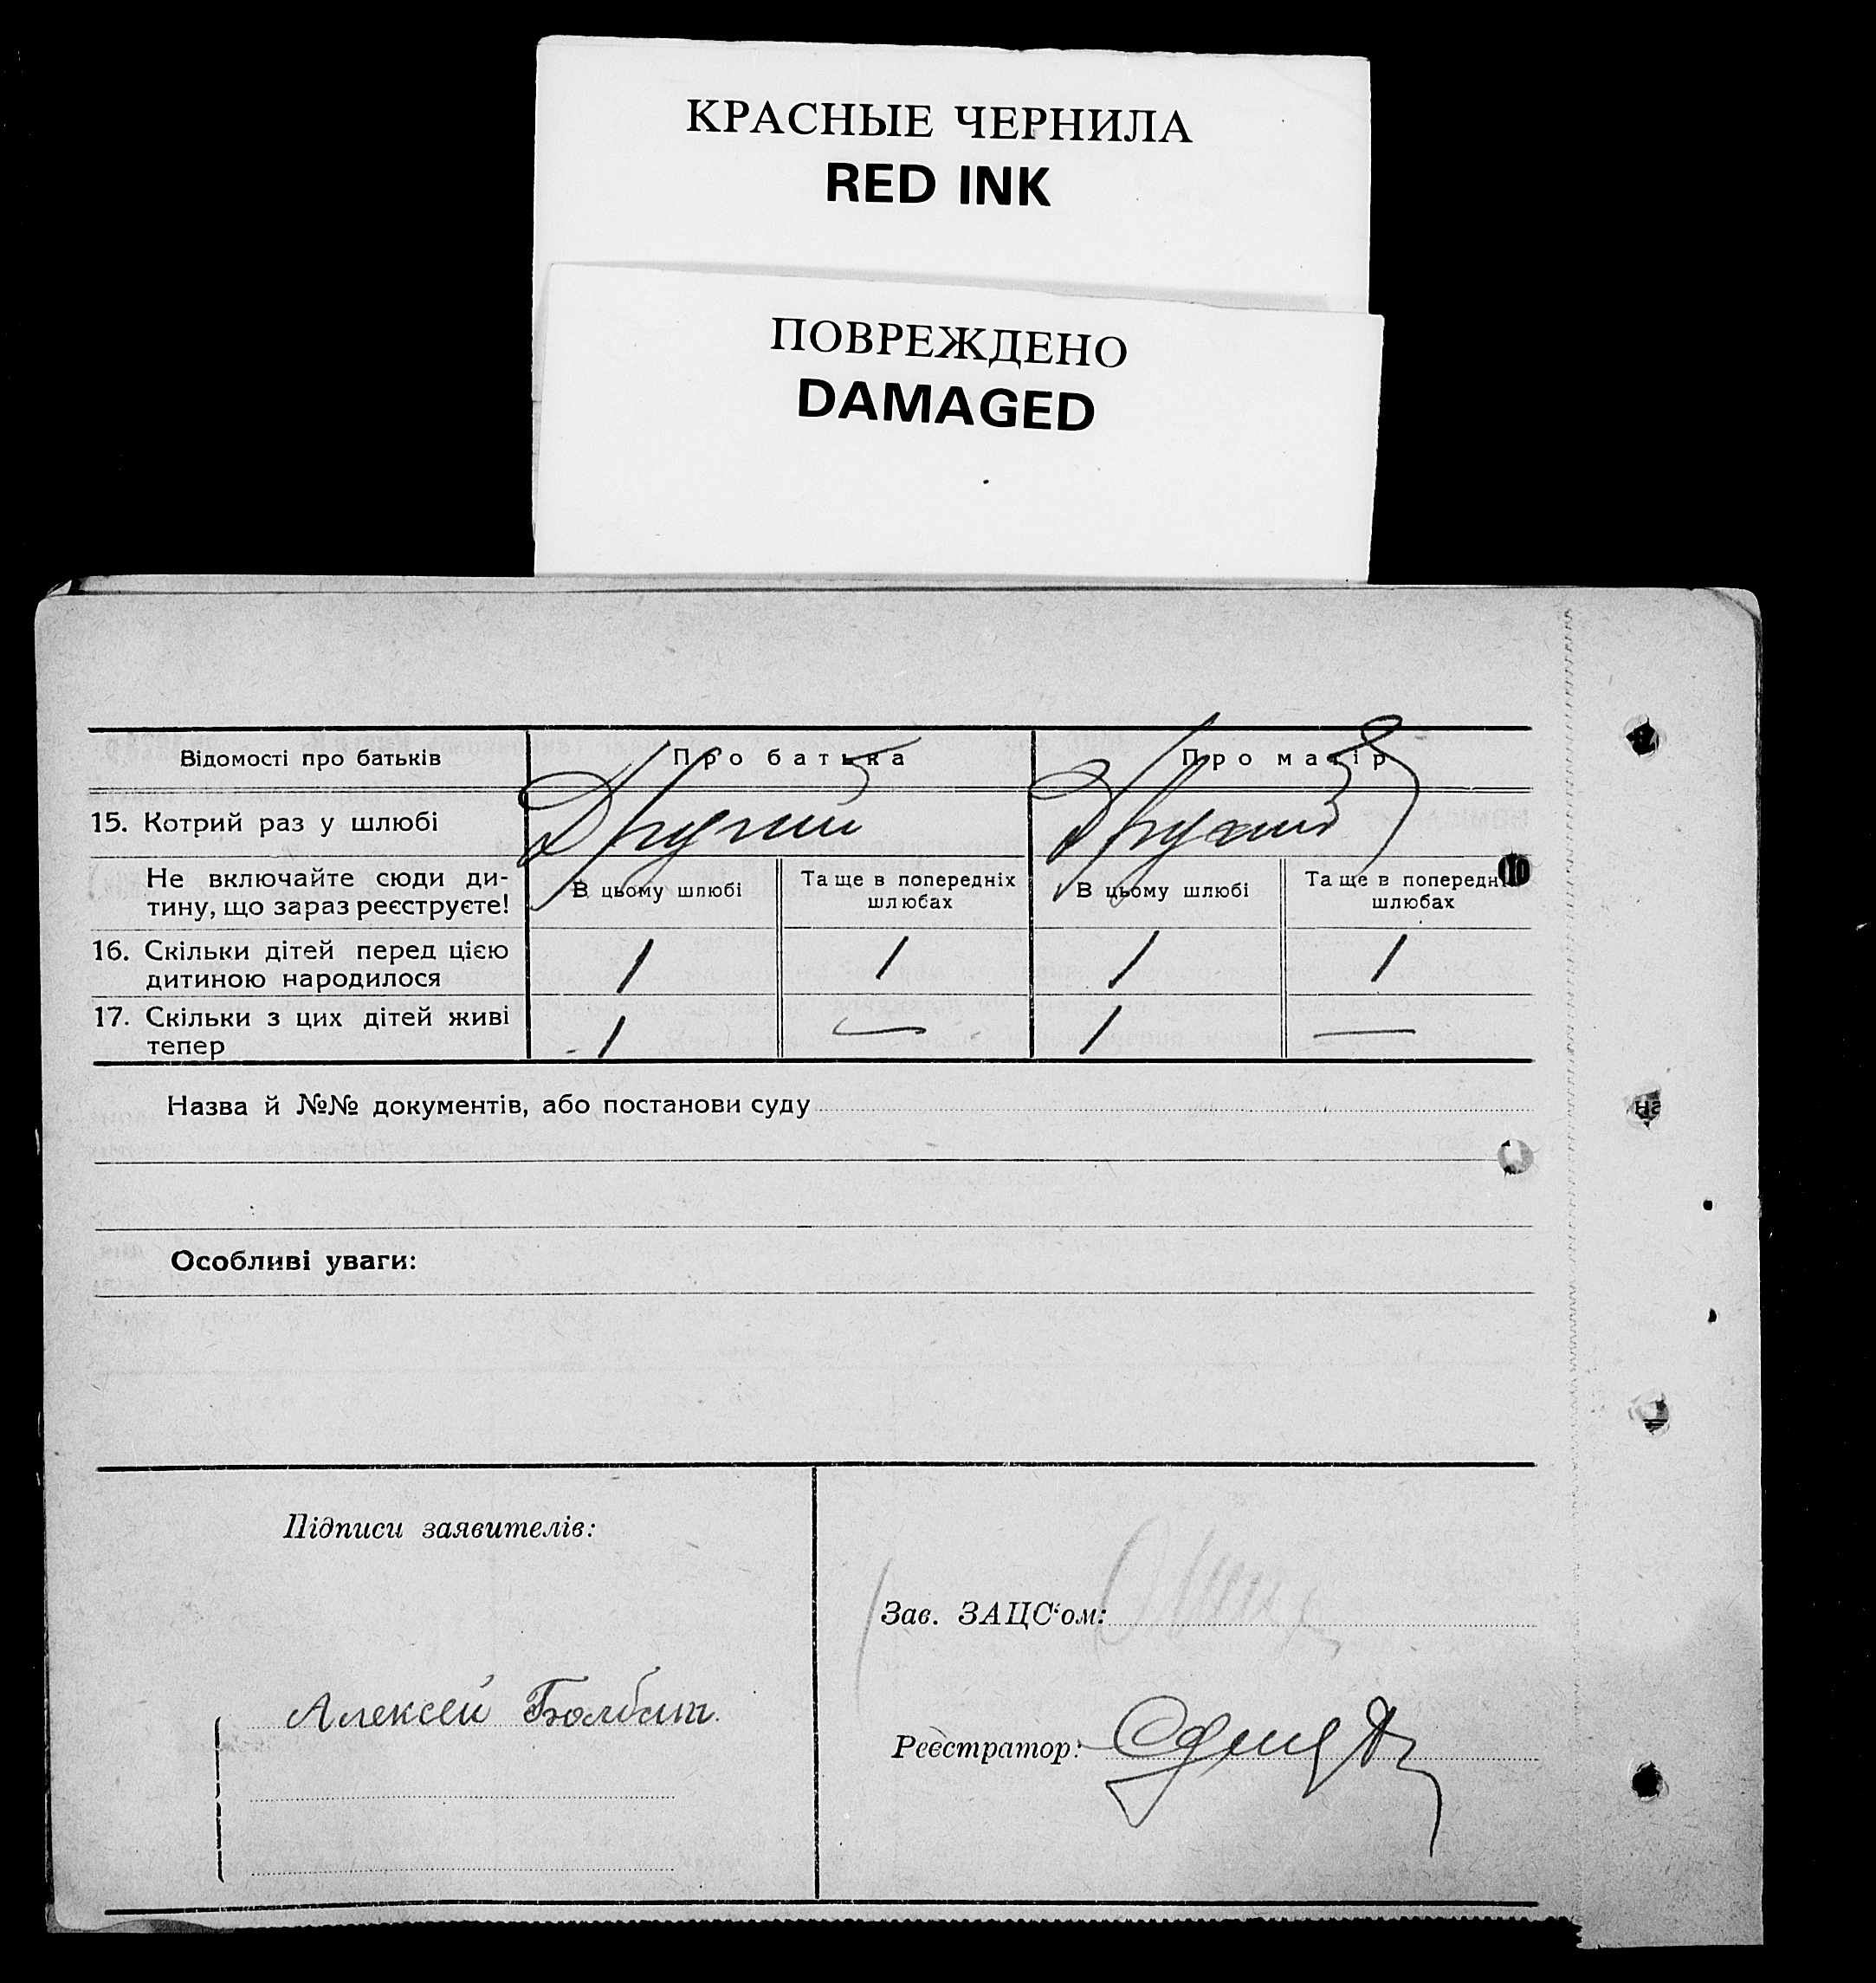 КРАСНЫЕ ЧЕРНИЛА
RED INK
ПОВРЕЖДЕНО
DAMAGED
Відомості про батьків Про батька Про матір
15. Котрий раз у шлюбі Другий Другий
Не включайте сюди ди-
тину, що зараз реєструєте!
В цьому шлюбі Та ще в попередніх шлюбах В цьому шлюбі Та ще в попередніх шлюбах
16. Скільки дітей перед цією
дитиною народилося 1 1 1 1
17. Скільки з цих дітей живі
тепер 1 — 1 —
Назва й №№ документів, або постанови суду
Особливі уваги:
Підписи заявителів:
Зав. ЗАЦС'ом:
Алексей
Реєстратор: